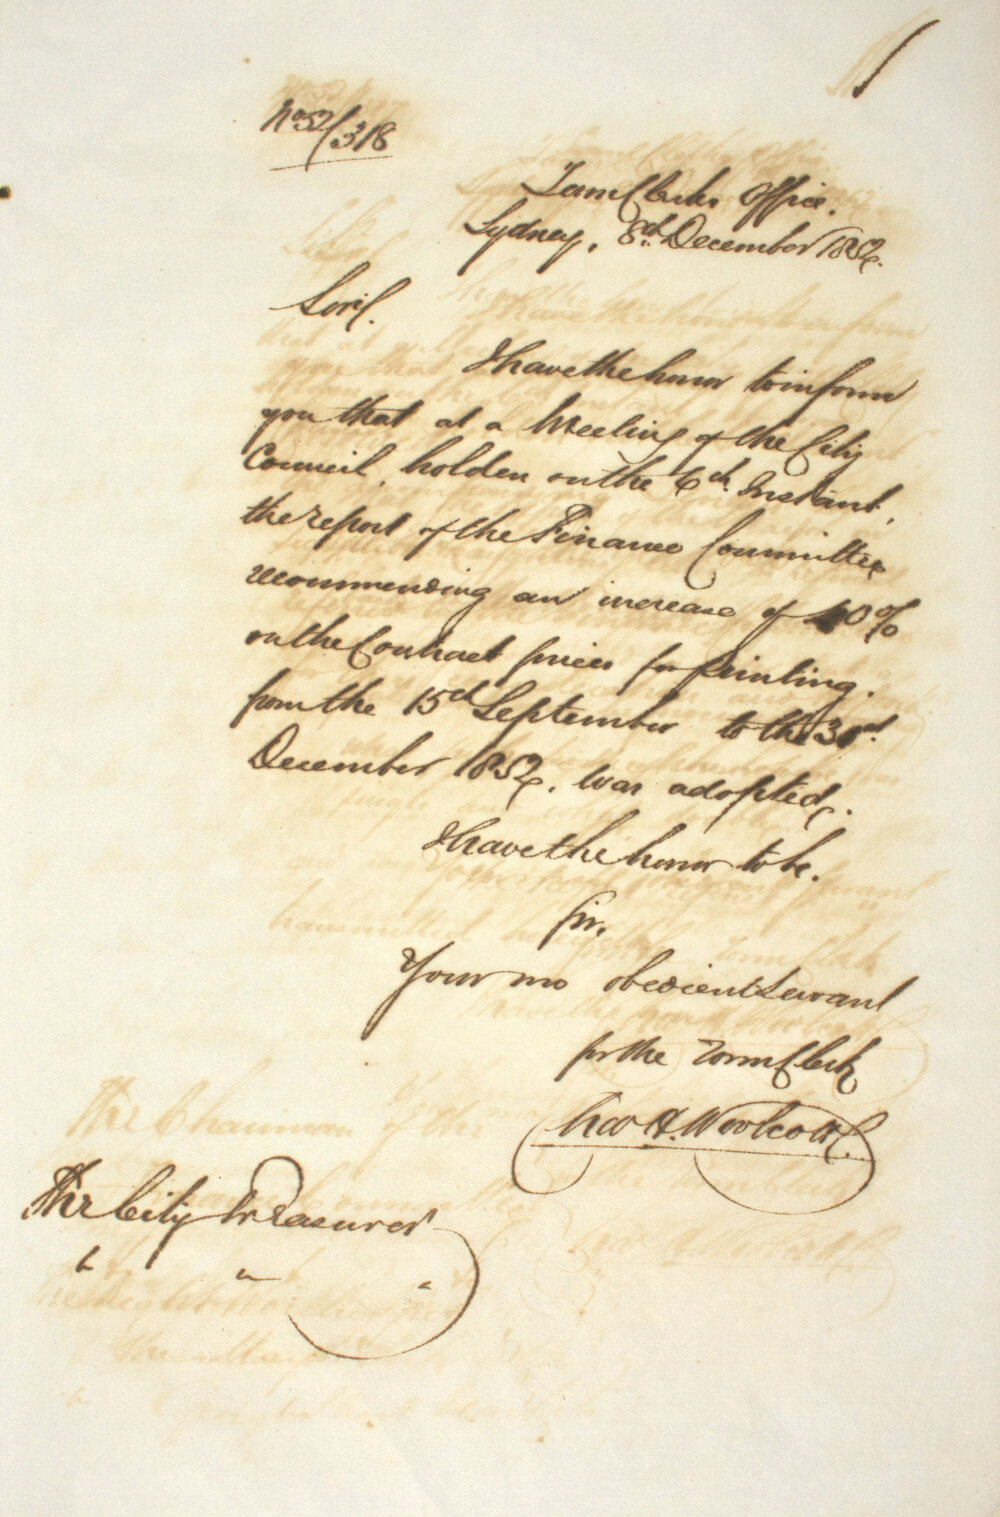 No 52/318
Town Clerks Office.
Sydney, 8th December 1852.
Sir,
I have the honor to inform
you that at a Meeting of the City
Council, holden on the 6th Instant,
the report of the Finance Committee
recommending an increase of 40%
on the Contract prices for printing.
from the 15th September to the 31st
December 1852, was adopted.
I have the honor to be.
Sir,
Your mo obedient Servant
for the Town Clerk
Chas H. Woolcott.
The City Treasurer